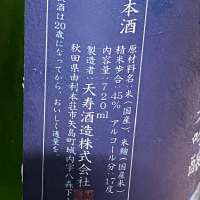 本酒
原材料名:米(国産)、米麹(国産米)
精米歩合:45% アルコール分:17度
内容量:720ml
製造者:天寿酒造株式会社
秋田県由利本荘市矢島町城内字八森下
酒は20歳になってから、おいしく適量を